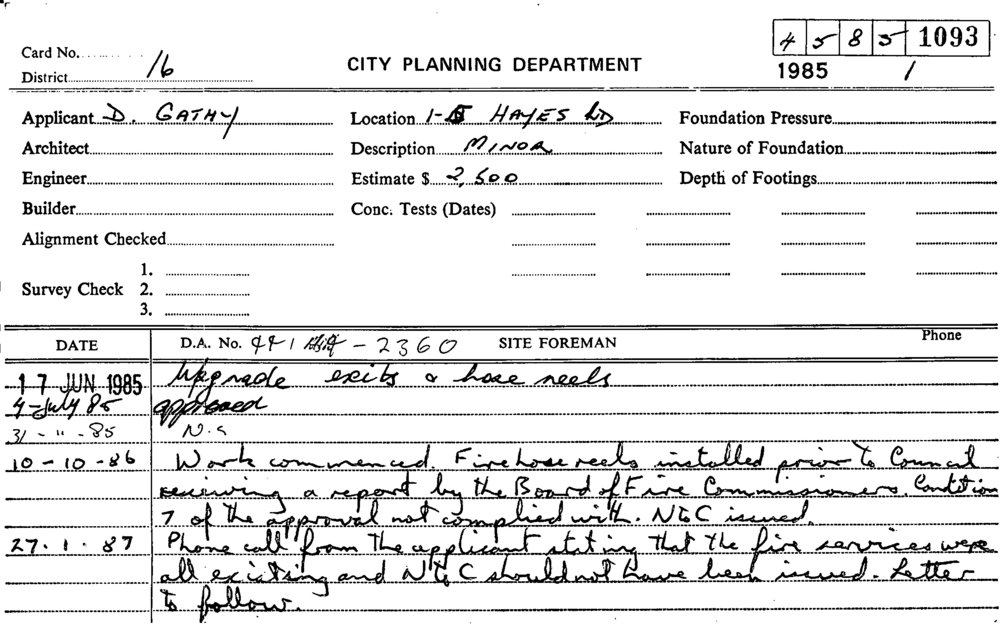 4 5 8 5 1093
Card No.
1985 /
District 16
CITY PLANNING DEPARTMENT
Applicant D. GATHY Location 1-5 HAYES RD Foundation Pressure
Architect Description MINOR Nature of Foundation
Engineer Estimate $ 2,500 Depth of Footings
Builder Conc. Tests (Dates)
Alignment Checked
1.
Survey Check 2.
3.
DATE D.A. No. 441 - 2360 SITE FOREMAN Phone
17 JUN 1985 Upgrade exits & hose reels
4-July 85 approved
31 - " - 85 N.S
10-10-86 Work commenced. Fire hose reels installed prior to Council
receiving a report by the Board of Fire Commissioners. Condition
7 of the approval not complied with. NtC issued.
27.1.87 Phone call from the applicant stating that the fire services were
all existing and NtC should not have been issued. Letter
to follow.